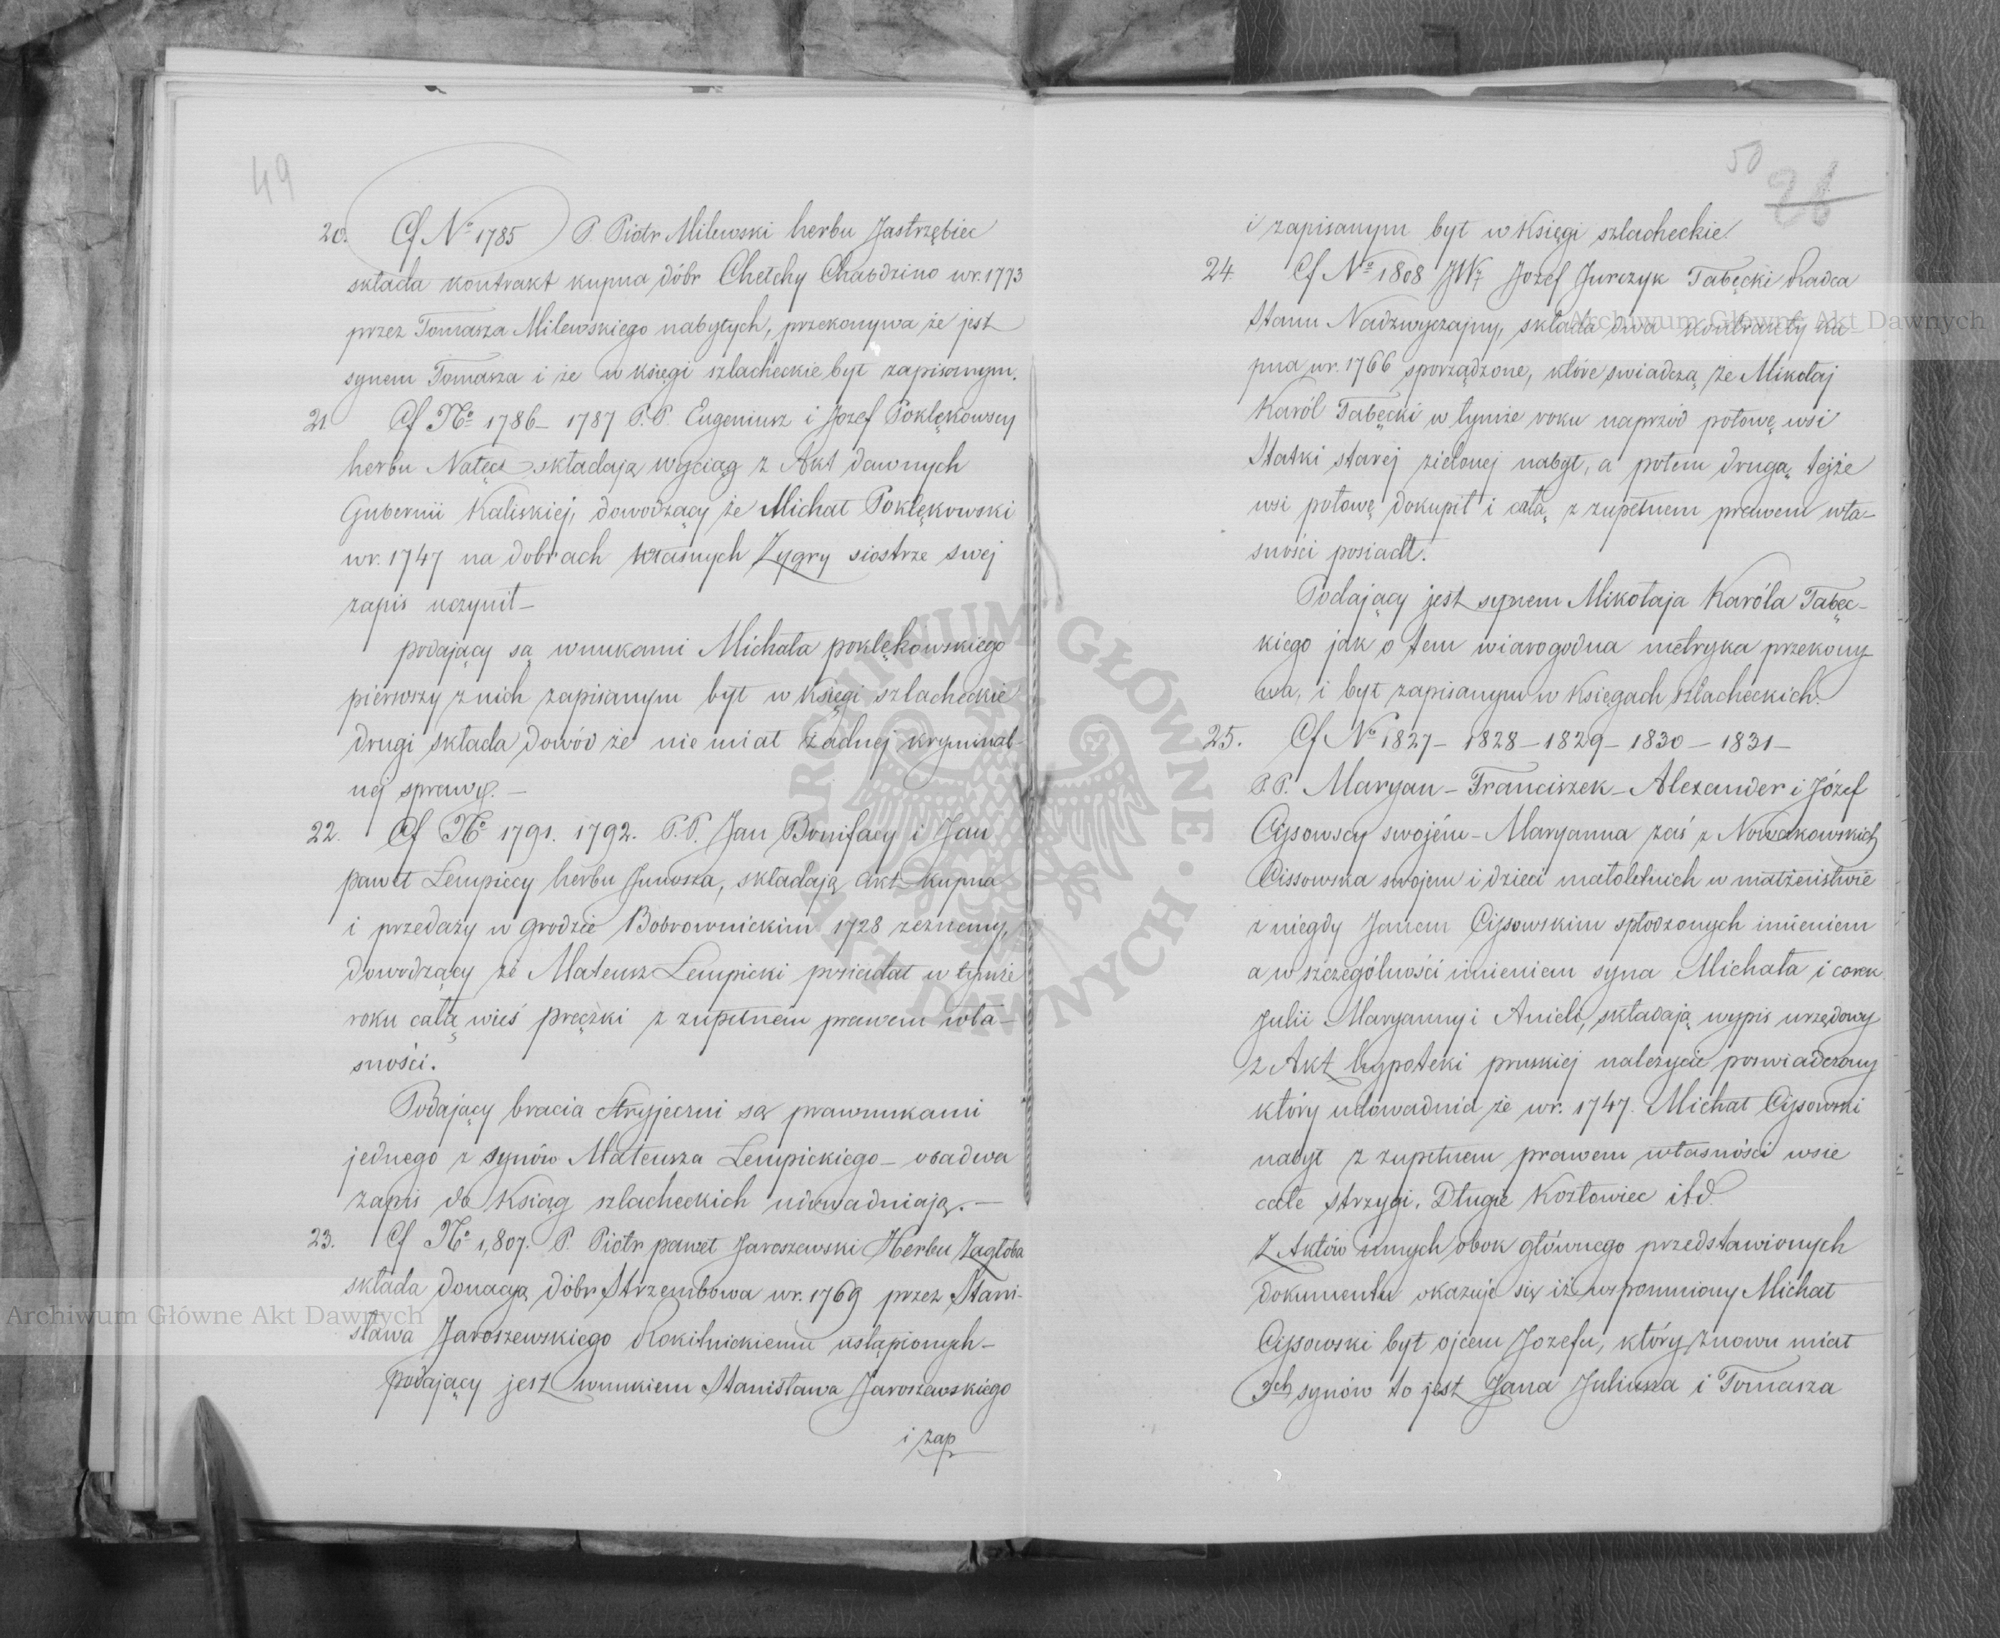 49
20. Cf Nº 1785 P. Piotr Milewski herbu Jastrzębiec
składa kontrakt kupna dóbr Chełchy Chabdzino wr. 1773
przez Tomasza Milewskiego nabytych, przekonywa że jest
synem Tomasza i że w księgi szlacheckie był zapisanym.
21 Cf Nº 1786 – 1787 P.P. Eugeniusz i Jozef Poklękowscy
herbu Nałęcz składają wyciąg z Akt dawnych
Gubernii Kaliskiej, dowodzący że Michał Poklękowski
wr. 1747 na dobrach własnych Zygry siostrze swej
zapis uczynił –
podający są wnukami Michała poklękowskiego
pierwszy z nich zapisanym był w księgi szlacheckie
drugi składa dowód że nie miał żadnej kryminal-
nej sprawy. –
22. Cf Nº 1791. 1792. P.P. Jan Bonifacy i Jan
paweł Lempiccy herbu Junosza, składają akt kupna
i przedaży w grodzie Bobrownickim 1728 zeznany,
dowodzący że Mateusz Lempicki posiadał w tymże
roku całą wieś pręczki z zupełnem prawem wła–
sności.
Podający bracia stryjeczni są prawnukami
jednego z synów Mateusza Lempickiego – obadwa
zapis do Ksiąg szlacheckich udowadniają. –
23. Cf Nº 1,807. P. Piotr paweł Jaroszewski Herbu Zagłoba
składa donacją dóbr Strzembowa wr. 1769 przez Stani-
sława Jaroszewskiego Rokitnickiemu ustąpionych –
podający jest wnukiem Stanisława Jaroszewskiego
i zap
50
26
i zapisanym był w Księgi szlacheckie.
24 Cf Nº 1808 JW. Jozef Jurczyk Tabęcki Radca
Stanu Nadzwyczajny, składa dwa kontrakty ku
pna wr. 1766 sporządzone, które swiadczą że Mikołaj
Karól Tabęcki w tymże roku naprzód połowę wsi
Statki starej zielonej nabył, a potem drugą tejże
wsi połowę dokupił i całą z zupełnem prawem wła–
sności posiadł.
Podający jest synem Mikołaja Karóla Tabęc–
kiego jak o tem wiarogodna metryka przekony
wa, i był zapisanym w Księgach szlacheckich.
25. Cf Nº 1827 – 1828 – 1829 – 1830 – 1831 –
P.P. Maryan – Franciszek – Alexander i Józef
Cissowscy swojém – Maryanna zaś z Nowakowskich
Cissowska swojem i dzieci małoletnich w małżeństwie
z niegdy Janem Cissowskim spłodzonych imieniem
a w szczególności imieniem syna Michała i corek
Julii Maryanny i Anieli, składają wypis urzędowy
z Akt hypoteki pruskiej należycie poswiadczony
który udowadnia że wr. 1747. Michał Cissowski
nabył z zupełnem prawem własności wsie
całe Strzygi, Długie Kozłowiec itd.
Z Aktów innych obok głównego przedstawionych
dokumentu okazuje się iż wspomniony Michał
Cissowski był ojcem Jozefa, który znowu miał
3ch synów to jest Jana Juliusza i Tomasza
Archiwum Główne Akt Dawnych
Archiwum Główne Akt Dawnych
ARCHIWUM GŁÓWNE AKT DAWNYCH